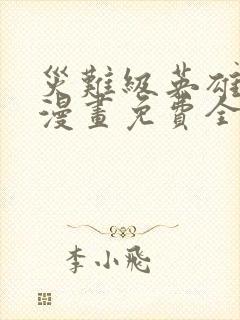 災難級英雄
漫畫免費全
李小飛